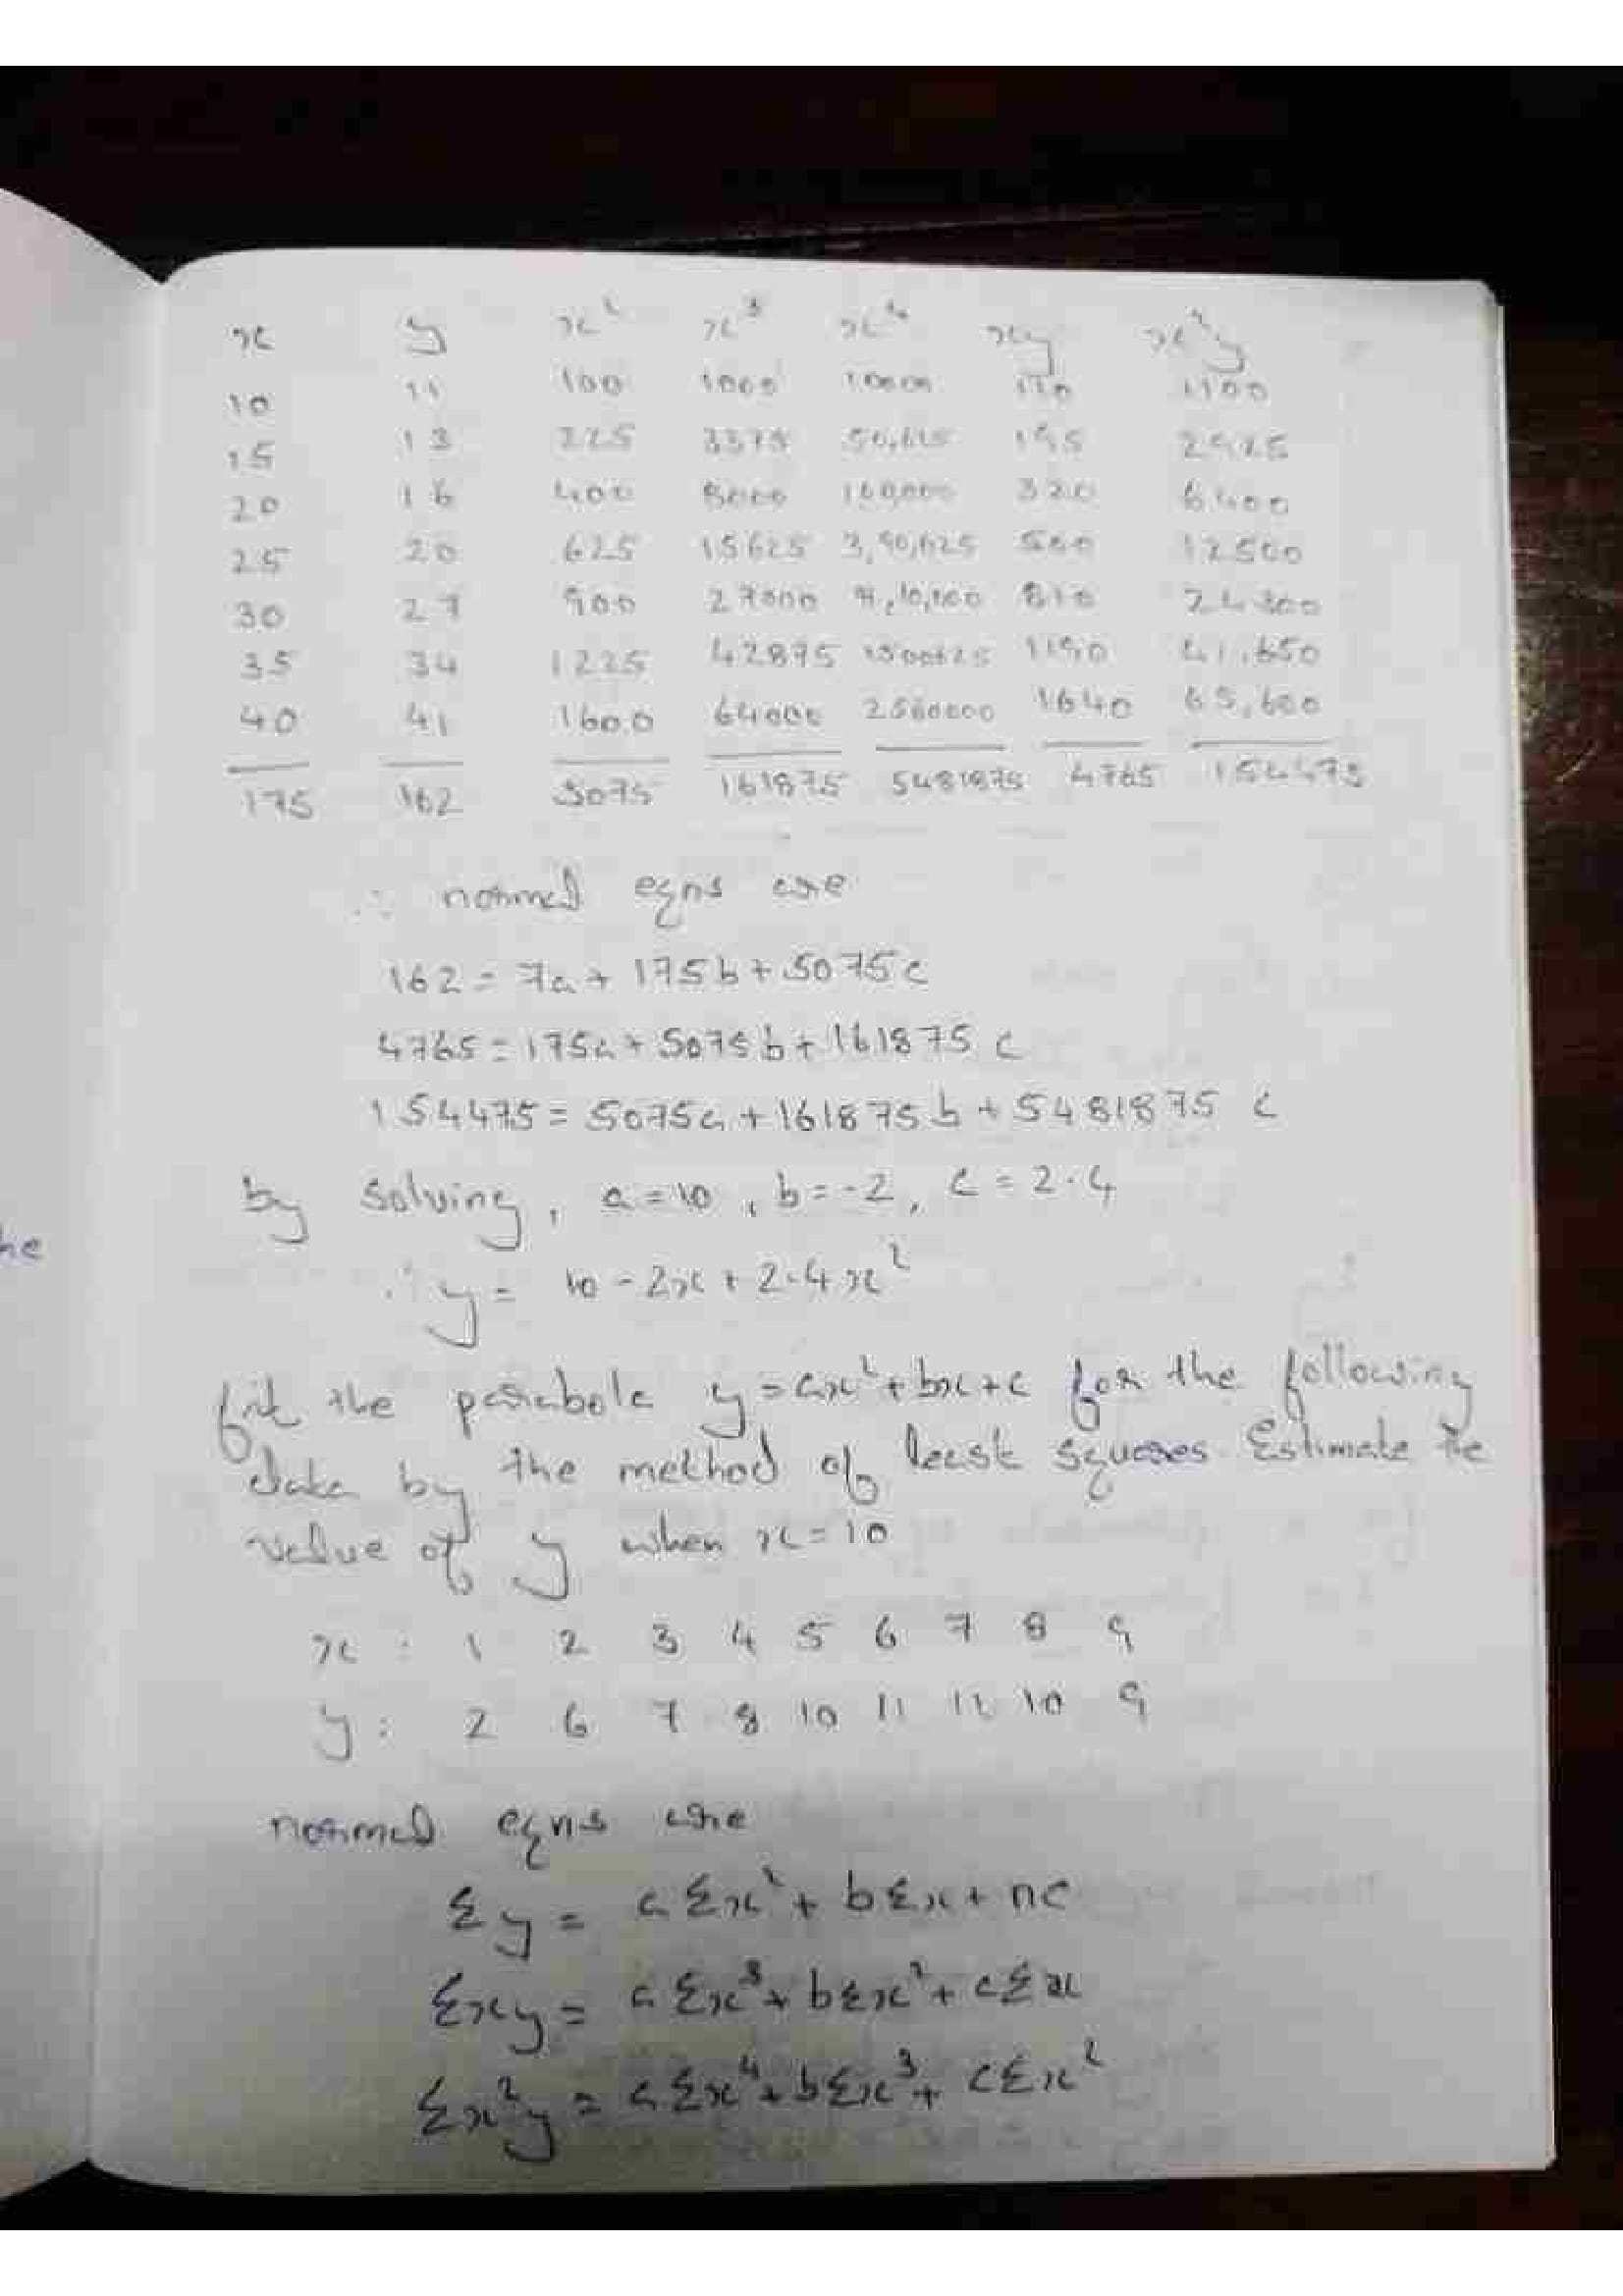 x y x² x³ x⁴ xy x²y
10 11 100 1000 10000 110 1100
15 13 225 3375 50,625 195 2925
20 16 400 8000 160,000 320 6400
25 20 625 15625 3,90,625 500 12500
30 27 900 27000 810
35 34 1225 42875 1500625 1190 41,650
40 41 1600 64000 2560000 1640 65,600
175 162 5075 161875 5481875 4765 154475
∴ normal eqns are
162 = 7a + 175b + 5075c
4765 = 175a + 5075b + 161875 c
154475 = 5075a + 161875b + 5481875 c
by solving, a = 10, b = -2, c = 2.4
∴ y = 10 - 2x + 2.4x²
he
fit the parabola y = ax² + bx + c for the following
data by the method of least squares. Estimate the
value of y when x = 10
x : 1 2 3 4 5 6 7 8 9
y : 2 6 7 8 10 11 11 10 9
normal eqns are
Σy = aΣx² + bΣx + nc
Σxy = aΣx³ + bΣx² + cΣx
Σx²y = aΣx⁴ + bΣx³ + cΣx²